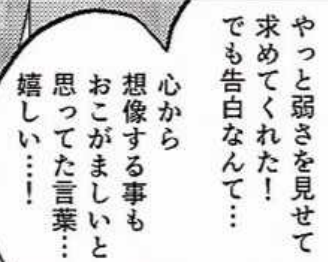 やっと弱さを見せて
求めてくれた!
でも告白なんて…
心から
想像する事も
おこがましいと
思ってた言葉…
嬉しい…!